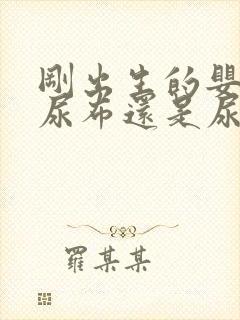 剛出生的嬰
尿布還是尿
羅某某